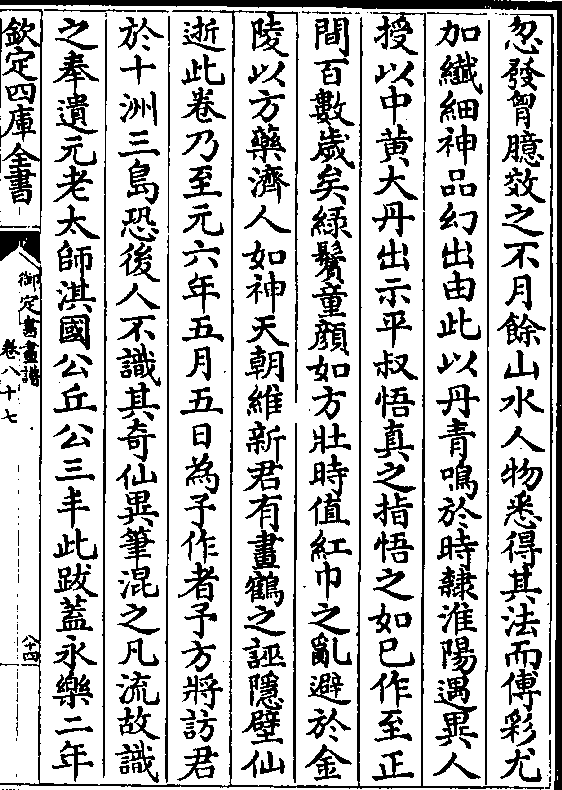 忽發胷臆效之不月餘山水人物悉得其法而傅彩尤
加纖細神品幻出由此以丹青鳴於時隷淮陽遇異人
授以中黄大丹出示平叔悟真之指悟之如已作至正
間百數歲矣緑鬢童顔如方壯時值紅巾之亂避於金
陵以方藥濟人如神天朝維新君有畫鶴之誣隱壁仙
逝此卷乃至元六年五月五日為予作者予方將訪君
於十洲三島恐後人不識其奇仙異筆混之凡流故識
之奉遺元老太師淇國公丘公三丰此跋蓋永樂二年
欽定四庫全書
御定書畫譜
卷八十七
八十四